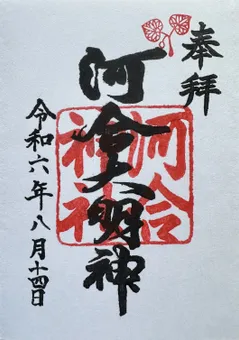 奉拝
河合大明神
河合
神社
令和六年八月十四日